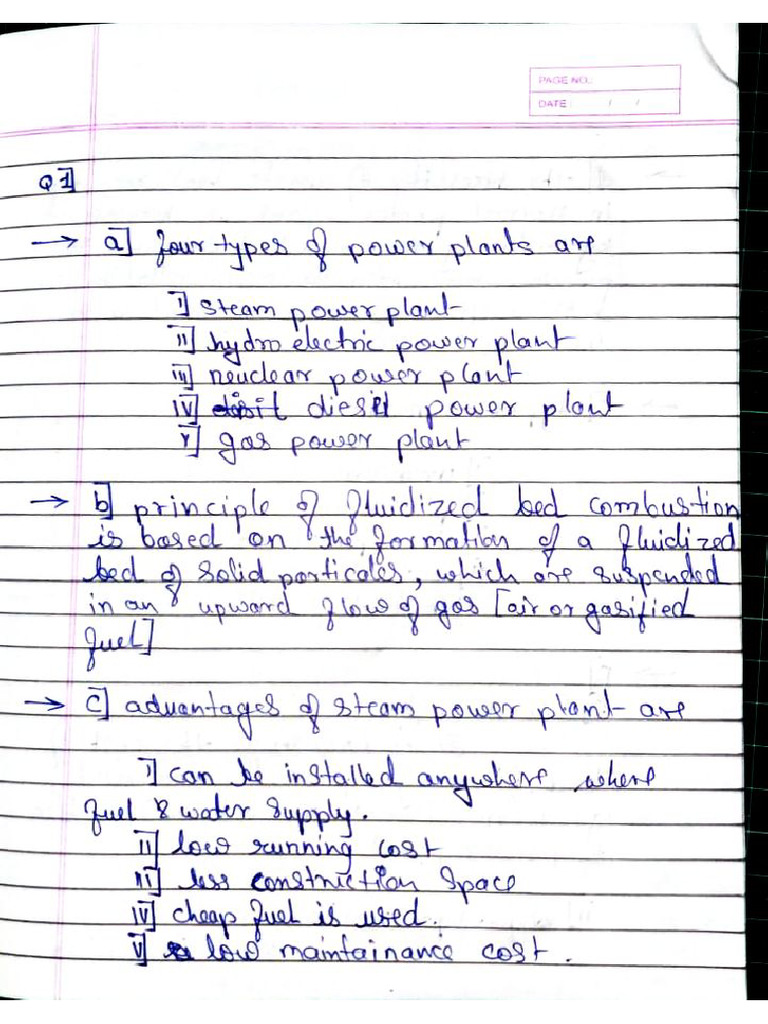 PAGE NO.:
DATE: / /
Q 1]
→ a] four types of power plants are
i] steam power plant
ii] hydro electric power plant
iii] neuclear power plant
iv] diesil power plant
v] gas power plant
→ b] principle of fluidized bed combustion
is based on the formation of a fluidized
bed of solid particales, which are suspended
in an upward flow of gas [air or gasified
fuel]
→ c] advantages of steam power plant are
i] can be installed anywhere where
fuel & water supply.
ii] low running cost
iii] less constriction space
iv] cheap fuel is used.
v] low maintainance cost.